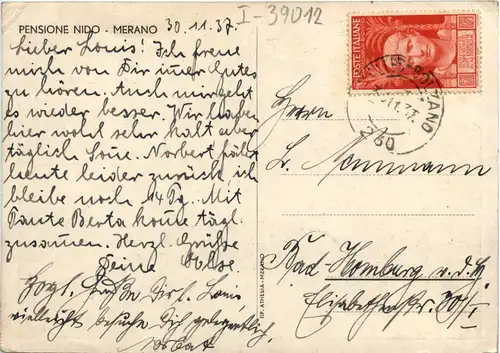 PENSIONE NIDO - MERANO
30.11.37.
I-39012
Lieber Louis! Ich freue
mich von Dir imer Gutes
zu hören. Auch mir geht
es wieder besser. Wir haben
hier wohl sehr kalt aber
täglich Sone. Norbert fährt
heute leider zurück, ich
bleibe noch 14 Tg. Mit
Tante Berta kome tägl.
zusamen. Herzl. Grüsse
Deine
Herzl. Grüße
vielleicht besuche Dich gelegentlich.
POSTE ITALIANE
MERANO
Herrn
L.
Bad-Homburg v.d.H.
Elisabethenstr.
TIP. ATHESIA - MERANO